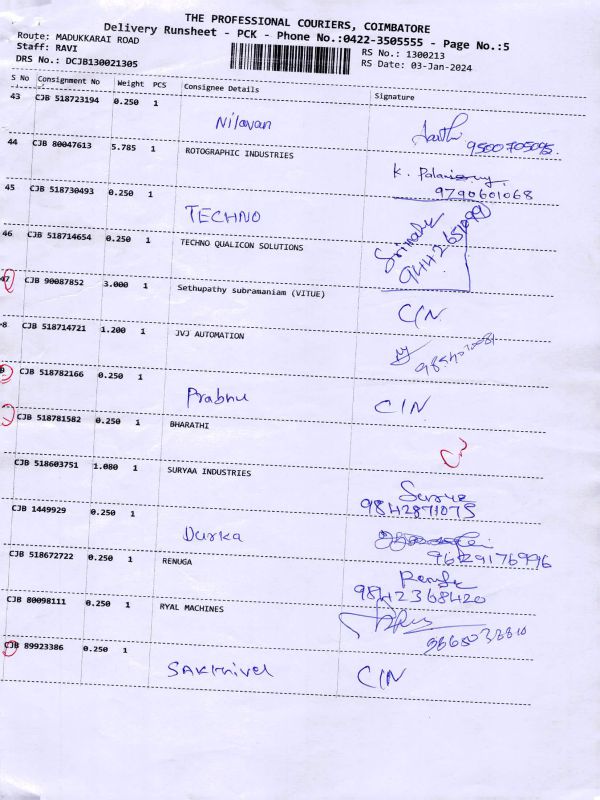 THE PROFESSIONAL COURIERS, COIMBATORE
Delivery Runsheet - PCK - Phone No.:0422-3505555 - Page No.:5
Route: MADUKKARAI ROAD
Staff: RAVI
RS No.: 1300213
DRS No.: DCJB130021305
RS Date: 03-Jan-2024
S No Consignment No Weight PCS Consignee Details Signature
43 CJB 518723194 0.250 1 Nilavan
9500705095
44 CJB 80047613 5.785 1 ROTOGRAPHIC INDUSTRIES K.
9790601068
45 CJB 518730493 0.250 1 TECHNO
46 CJB 518714654 0.250 1 TECHNO QUALICON SOLUTIONS
47 CJB 90087852 3.000 1 Sethupathy subramaniam (VITUE) C/N
8 CJB 518714721 1.200 1 JVJ AUTOMATION
9 CJB 518782166 0.250 1 Prabhu C/N
CJB 518781582 0.250 1 BHARATHI
CJB 518603751 1.080 1 SURYAA INDUSTRIES Surya
9842871075
CJB 1449929 0.250 1 Durka
9629176996
CJB 518672722 0.250 1 RENUGA
9842368420
CJB 80098111 0.250 1 RYAL MACHINES
CJB 89923386 0.250 1 SAKTHIVEL C/N